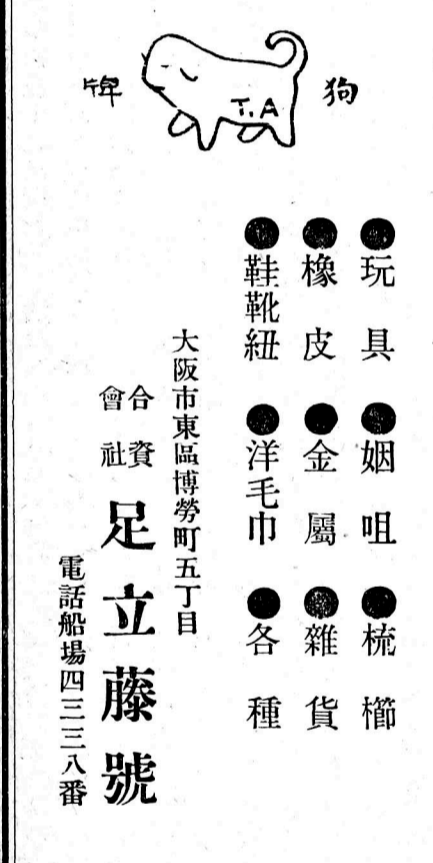 狗牌
T.A
●玩具●姻咀●梳櫛
●橡皮●金屬●雜貨
●鞋靴紐●洋毛巾●各種
大阪市東區博勞町五丁目
合資會社 足立藤號
電話船場四三三八番